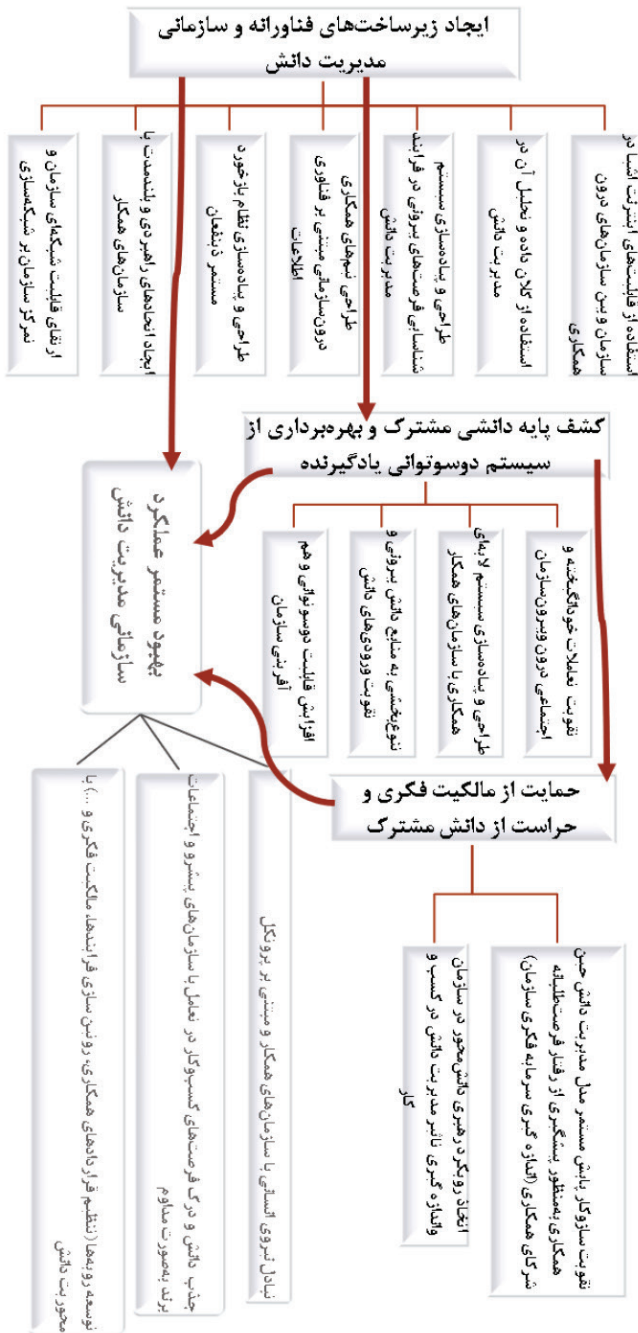 ایجاد زیرساخت‌های فناورانه و سازمانی
مدیریت دانش
استفاده از قابلیت‌های اینترنت اشیا در
سازمان و بین سازمان‌های درون
همکاری
استفاده از کلان داده و تحلیل آن در
مدیریت دانش
طراحی و پیاده‌سازی سیستم
شناسایی فرصت‌های بیرونی در فرایند
مدیریت دانش
طراحی تیم‌های همکاری
درون‌سازمانی مبتنی بر فناوری
اطلاعات
طراحی و پیاده‌سازی نظام بازخورد
مستمر ذینفعان
ایجاد اتحادهای راهبردی و بلندمدت با
سازمان‌های همکار
ارتقای قابلیت شبکه‌ای سازمان و
تمرکز سازمان بر شبکه‌سازی
کشف پایه دانشی مشترک و بهره‌برداری از
سیستم دوسوتوانی یادگیرنده
تقویت تعاملات خودانگیخته و
اجتماعی درون وبیرون‌سازمان
طراحی و پیاده‌سازی سیستم لایه‌ای
همکاری با سازمان‌های همکار
تنوع‌بخشی به منابع دانش بیرونی و
تقویت ورودی‌های دانش
افزایش قابلیت دوسوتوانی و هم
آفرینی سازمان
حمایت از مالکیت فکری و
حراست از دانش مشترک
تقویت سازوکار پایش مستمر مدل مدیریت دانش حین
همکاری به‌منظور پیشگیری از رفتار فرصت‌طلبانه
شرکای همکاری (اندازه گیری سرمایه فکری سازمان)
اتخاذ رویکرد رهبری دانش‌محور در سازمان
واندازه گیری تاثیر مدیریت دانش در کسب و
کار
بهبود مستمر عملکرد
سازمانی مدیریت دانش
تبادل نیروی انسانی با سازمان‌های همکار و مبتنی بر پروتکل
جذب دانش و درک فرصت‌های کسب‌وکار در تعامل با سازمان‌های پیشرو و اجتماعات
برند به‌صورت مداوم
توسعه رویه‌ها (تنظیم قراردادهای همکاری، روتین سازی فرایندها، مالکیت فکری و ...) با
محوریت دانش